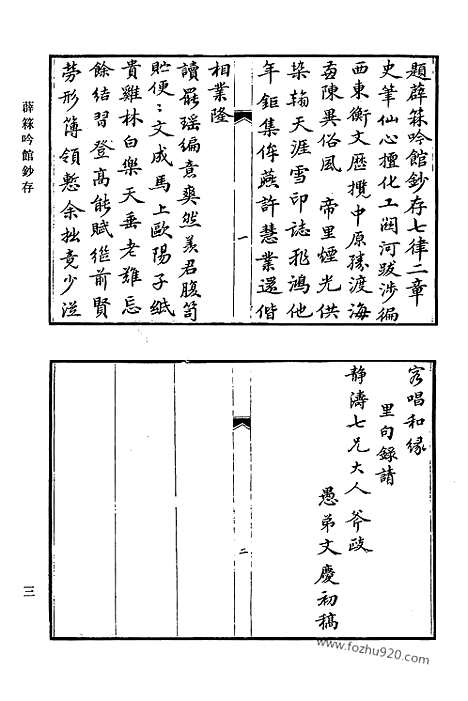 題薜箖吟館鈔存七律二章
史筆仙心擅化工關河跋涉徧
西東衡文歷攬中原勝渡海
畫陳異俗風 帝里煙光供
染翰天涯雪印誌飛鴻他
年鉅集侔燕許慧業還偕
相業隆
讀罷瑤編意爽然羨君腹笥
貯便〻文成馬上歐陽子紙
貴雞林白樂天垂老難忘
餘結習登高能賦繼前賢
勞形簿領慙余拙竟少從
一
薜箖吟館鈔存
容唱和緣
里句錄請
靜濤七兄大人斧政
愚弟文慶初稿
二
三
www.fozhu920.com